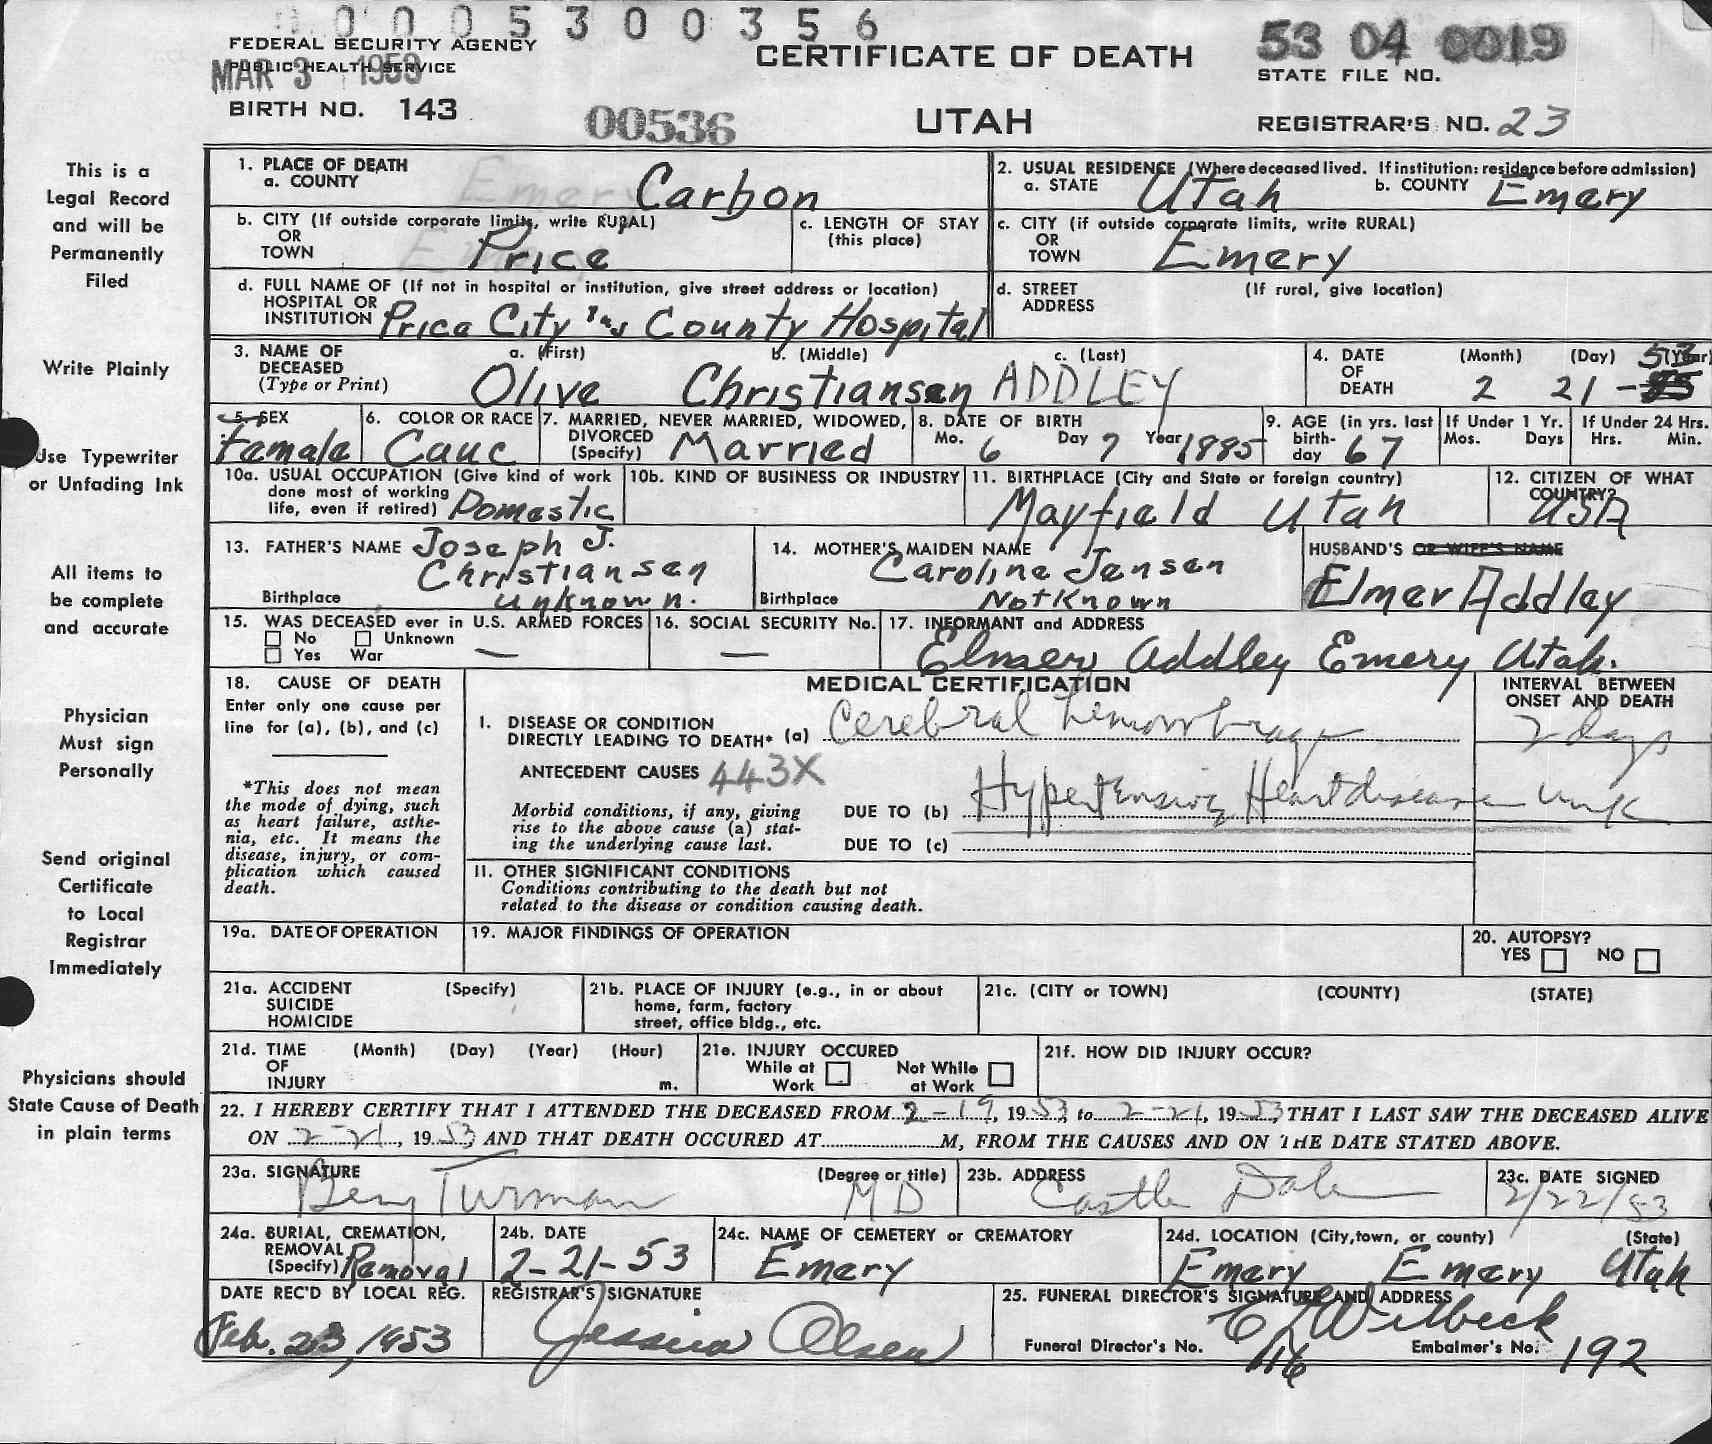 0005300356
FEDERAL SECURITY AGENCY
PUBLIC HEALTH SERVICE
MAR 3 1953
CERTIFICATE OF DEATH
53 04 0019
STATE FILE NO.
BIRTH NO. 143
00536
UTAH
REGISTRAR'S NO. 23
This is a
Legal Record
and will be
Permanently
Filed
Write Plainly
Use Typewriter
or Unfading Ink
All items to
be complete
and accurate
Physician
Must sign
Personally
Send original
Certificate
to Local
Registrar
Immediately
Physicians should
State Cause of Death
in plain terms
1. PLACE OF DEATH
a. COUNTY Carbon
2. USUAL RESIDENCE (Where deceased lived. If institution: residence before admission)
a. STATE Utah b. COUNTY Emery
b. CITY (If outside corporate limits, write RURAL)
OR
TOWN Price
c. LENGTH OF STAY
(this place)
c. CITY (if outside corporate limits, write RURAL)
OR
TOWN Emery
d. FULL NAME OF (If not in hospital or institution, give street address or location)
HOSPITAL OR
INSTITUTION Price City County Hospital
d. STREET (If rural, give location)
ADDRESS
3. NAME OF DECEASED
(Type or Print)
a. (First) b. (Middle) c. (Last)
Olive Christiansen ADDLEY
4. DATE OF DEATH
(Month) (Day) (Year)
2 21 - 53
5. SEX
Female
6. COLOR OR RACE
Cauc
7. MARRIED, NEVER MARRIED, WIDOWED,
DIVORCED
(Specify) Married
8. DATE OF BIRTH
Mo. 6 Day 7 Year 1885
9. AGE (in yrs. last
birth-
day 67
If Under 1 Yr.
Mos. Days
If Under 24 Hrs.
Hrs. Min.
10a. USUAL OCCUPATION (Give kind of work
done most of working
life, even if retired) Domestic
10b. KIND OF BUSINESS OR INDUSTRY
11. BIRTHPLACE (City and State or foreign country)
Mayfield Utah
12. CITIZEN OF WHAT
COUNTRY?
USA
13. FATHER'S NAME Joseph J.
Christiansen
Birthplace Unknown.
14. MOTHER'S MAIDEN NAME
Caroline Jensen
Birthplace Not Known
HUSBAND'S OR WIFE'S NAME
Elmer Addley
15. WAS DECEASED ever in U.S. ARMED FORCES
No Unknown
Yes War —
16. SOCIAL SECURITY No.
—
17. INFORMANT and ADDRESS
Elmer Addley Emery Utah.
18. CAUSE OF DEATH
Enter only one cause per
line for (a), (b), and (c)
*This does not mean
the mode of dying, such
as heart failure, asthe-
nia, etc. It means the
disease, injury, or com-
plication which caused
death.
MEDICAL CERTIFICATION
INTERVAL BETWEEN
ONSET AND DEATH
I. DISEASE OR CONDITION
DIRECTLY LEADING TO DEATH* (a) Cerebral hemorrhage 2 days
ANTECEDENT CAUSES 443X
Morbid conditions, if any, giving
rise to the above cause (a) stat-
ing the underlying cause last.
DUE TO (b) Hypertensive Heart disease unk
DUE TO (c)
II. OTHER SIGNIFICANT CONDITIONS
Conditions contributing to the death but not
related to the disease or condition causing death.
19a. DATE OF OPERATION
19. MAJOR FINDINGS OF OPERATION
20. AUTOPSY?
YES NO
21a. ACCIDENT (Specify)
SUICIDE
HOMICIDE
21b. PLACE OF INJURY (e.g., in or about
home, farm, factory
street, office bldg., etc.
21c. (CITY or TOWN) (COUNTY) (STATE)
21d. TIME (Month) (Day) (Year) (Hour)
OF
INJURY m.
21e. INJURY OCCURED
While at Work Not While at Work
21f. HOW DID INJURY OCCUR?
22. I HEREBY CERTIFY THAT I ATTENDED THE DECEASED FROM 2-19, 1953 to 2-21, 1953, THAT I LAST SAW THE DECEASED ALIVE
ON 2-21, 1953, AND THAT DEATH OCCURED AT M, FROM THE CAUSES AND ON THE DATE STATED ABOVE.
23a. SIGNATURE (Degree or title)
Turman MD
23b. ADDRESS
Castle Dale
23c. DATE SIGNED
2/22/53
24a. BURIAL, CREMATION,
REMOVAL
(Specify) Removal
24b. DATE
2-21-53
24c. NAME OF CEMETERY OR CREMATORY
Emery
24d. LOCATION (City,town, or county) (State)
Emery Emery Utah
DATE REC'D BY LOCAL REG.
Feb. 23, 1953
REGISTRAR'S SIGNATURE
Jessica Olsen
25. FUNERAL DIRECTOR'S SIGNATURE AND ADDRESS
Wilbeck
Funeral Director's No. 116 Embalmer's No. 192